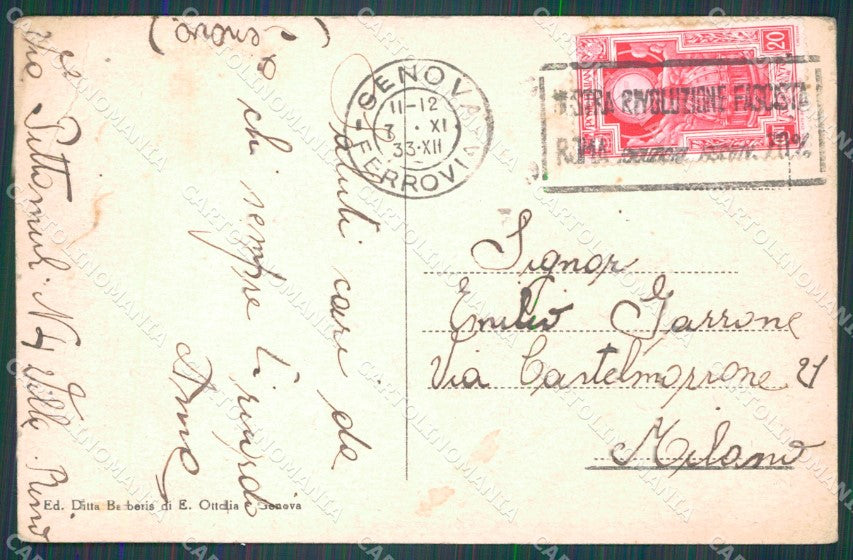 Saluti cari da
chi sempre ti ricorda
(Genova)
Via N 4 Villa
GENOVA
11-12
3 . XI
33.XII
FERROVIA
20
MOSTRA RIVOLUZIONE FASCISTA
ROMA
Signor
Emilio Garrone
Via Castelmorrone 21
Milano
Ed. Ditta Barberis di E. Ottolia - Genova
CARTOLINOMANIA